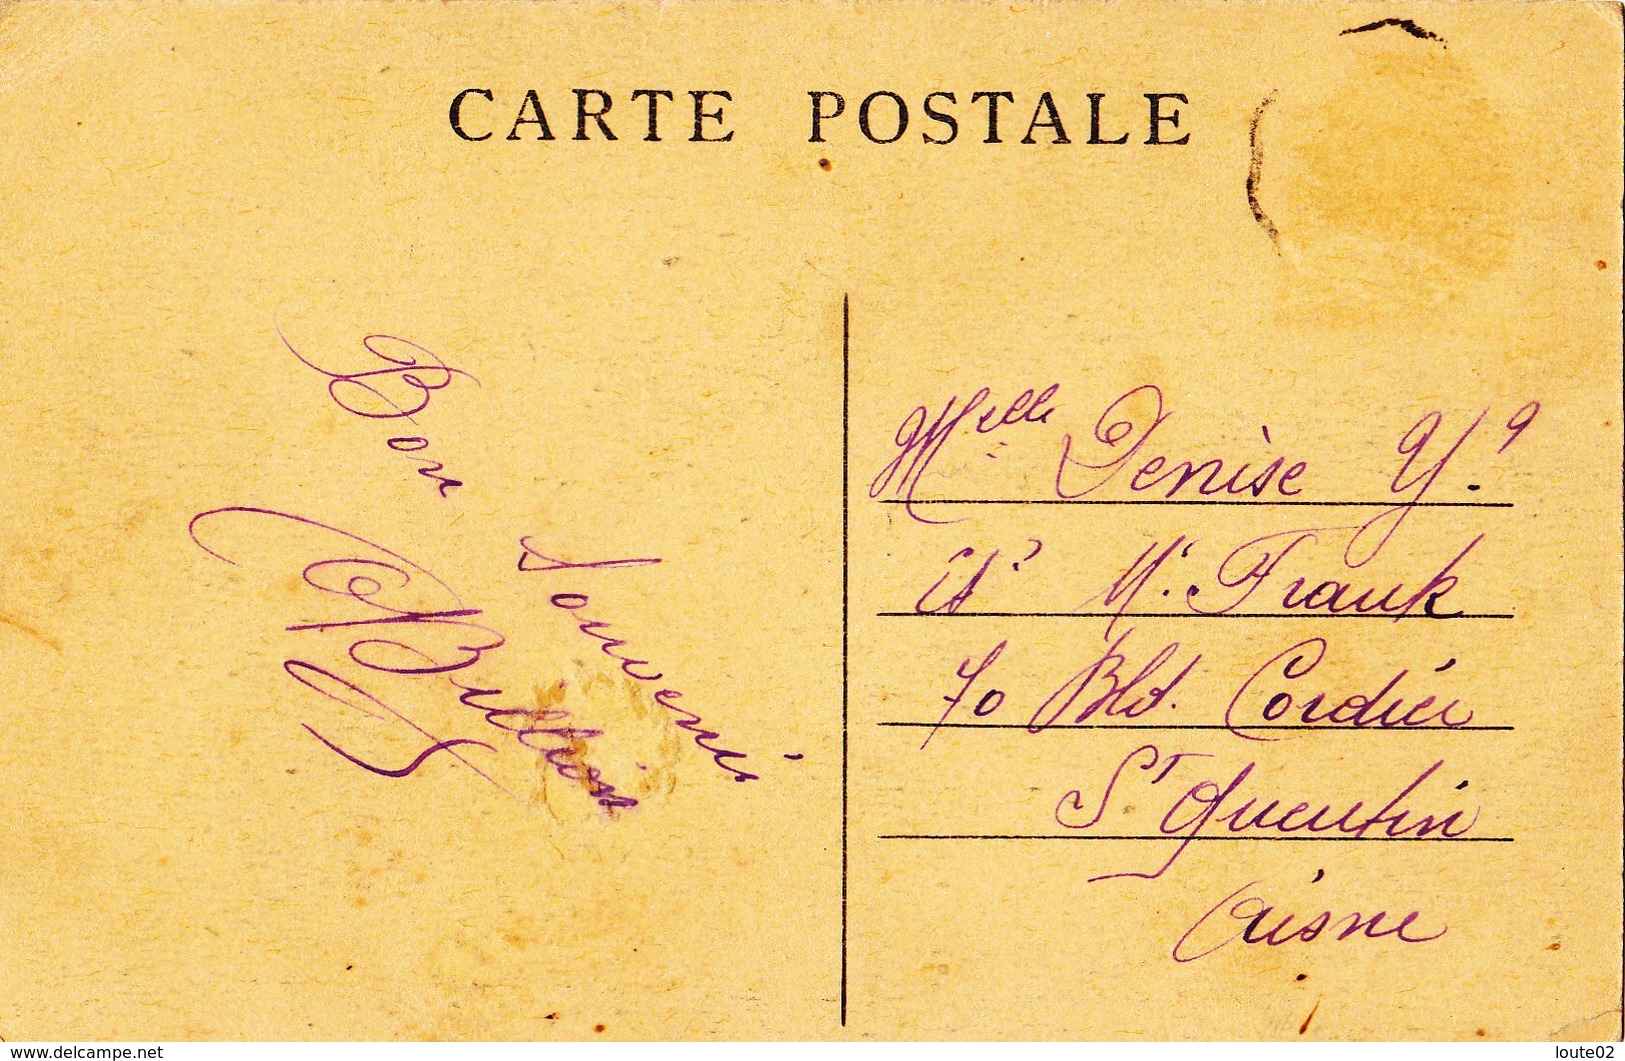 CARTE POSTALE
Bon
Souvenir
Melle Denise Y.
Mr. Frank
70 Bld. Cordier
St Quentin
Aisne
www.delcampe.net
loute02